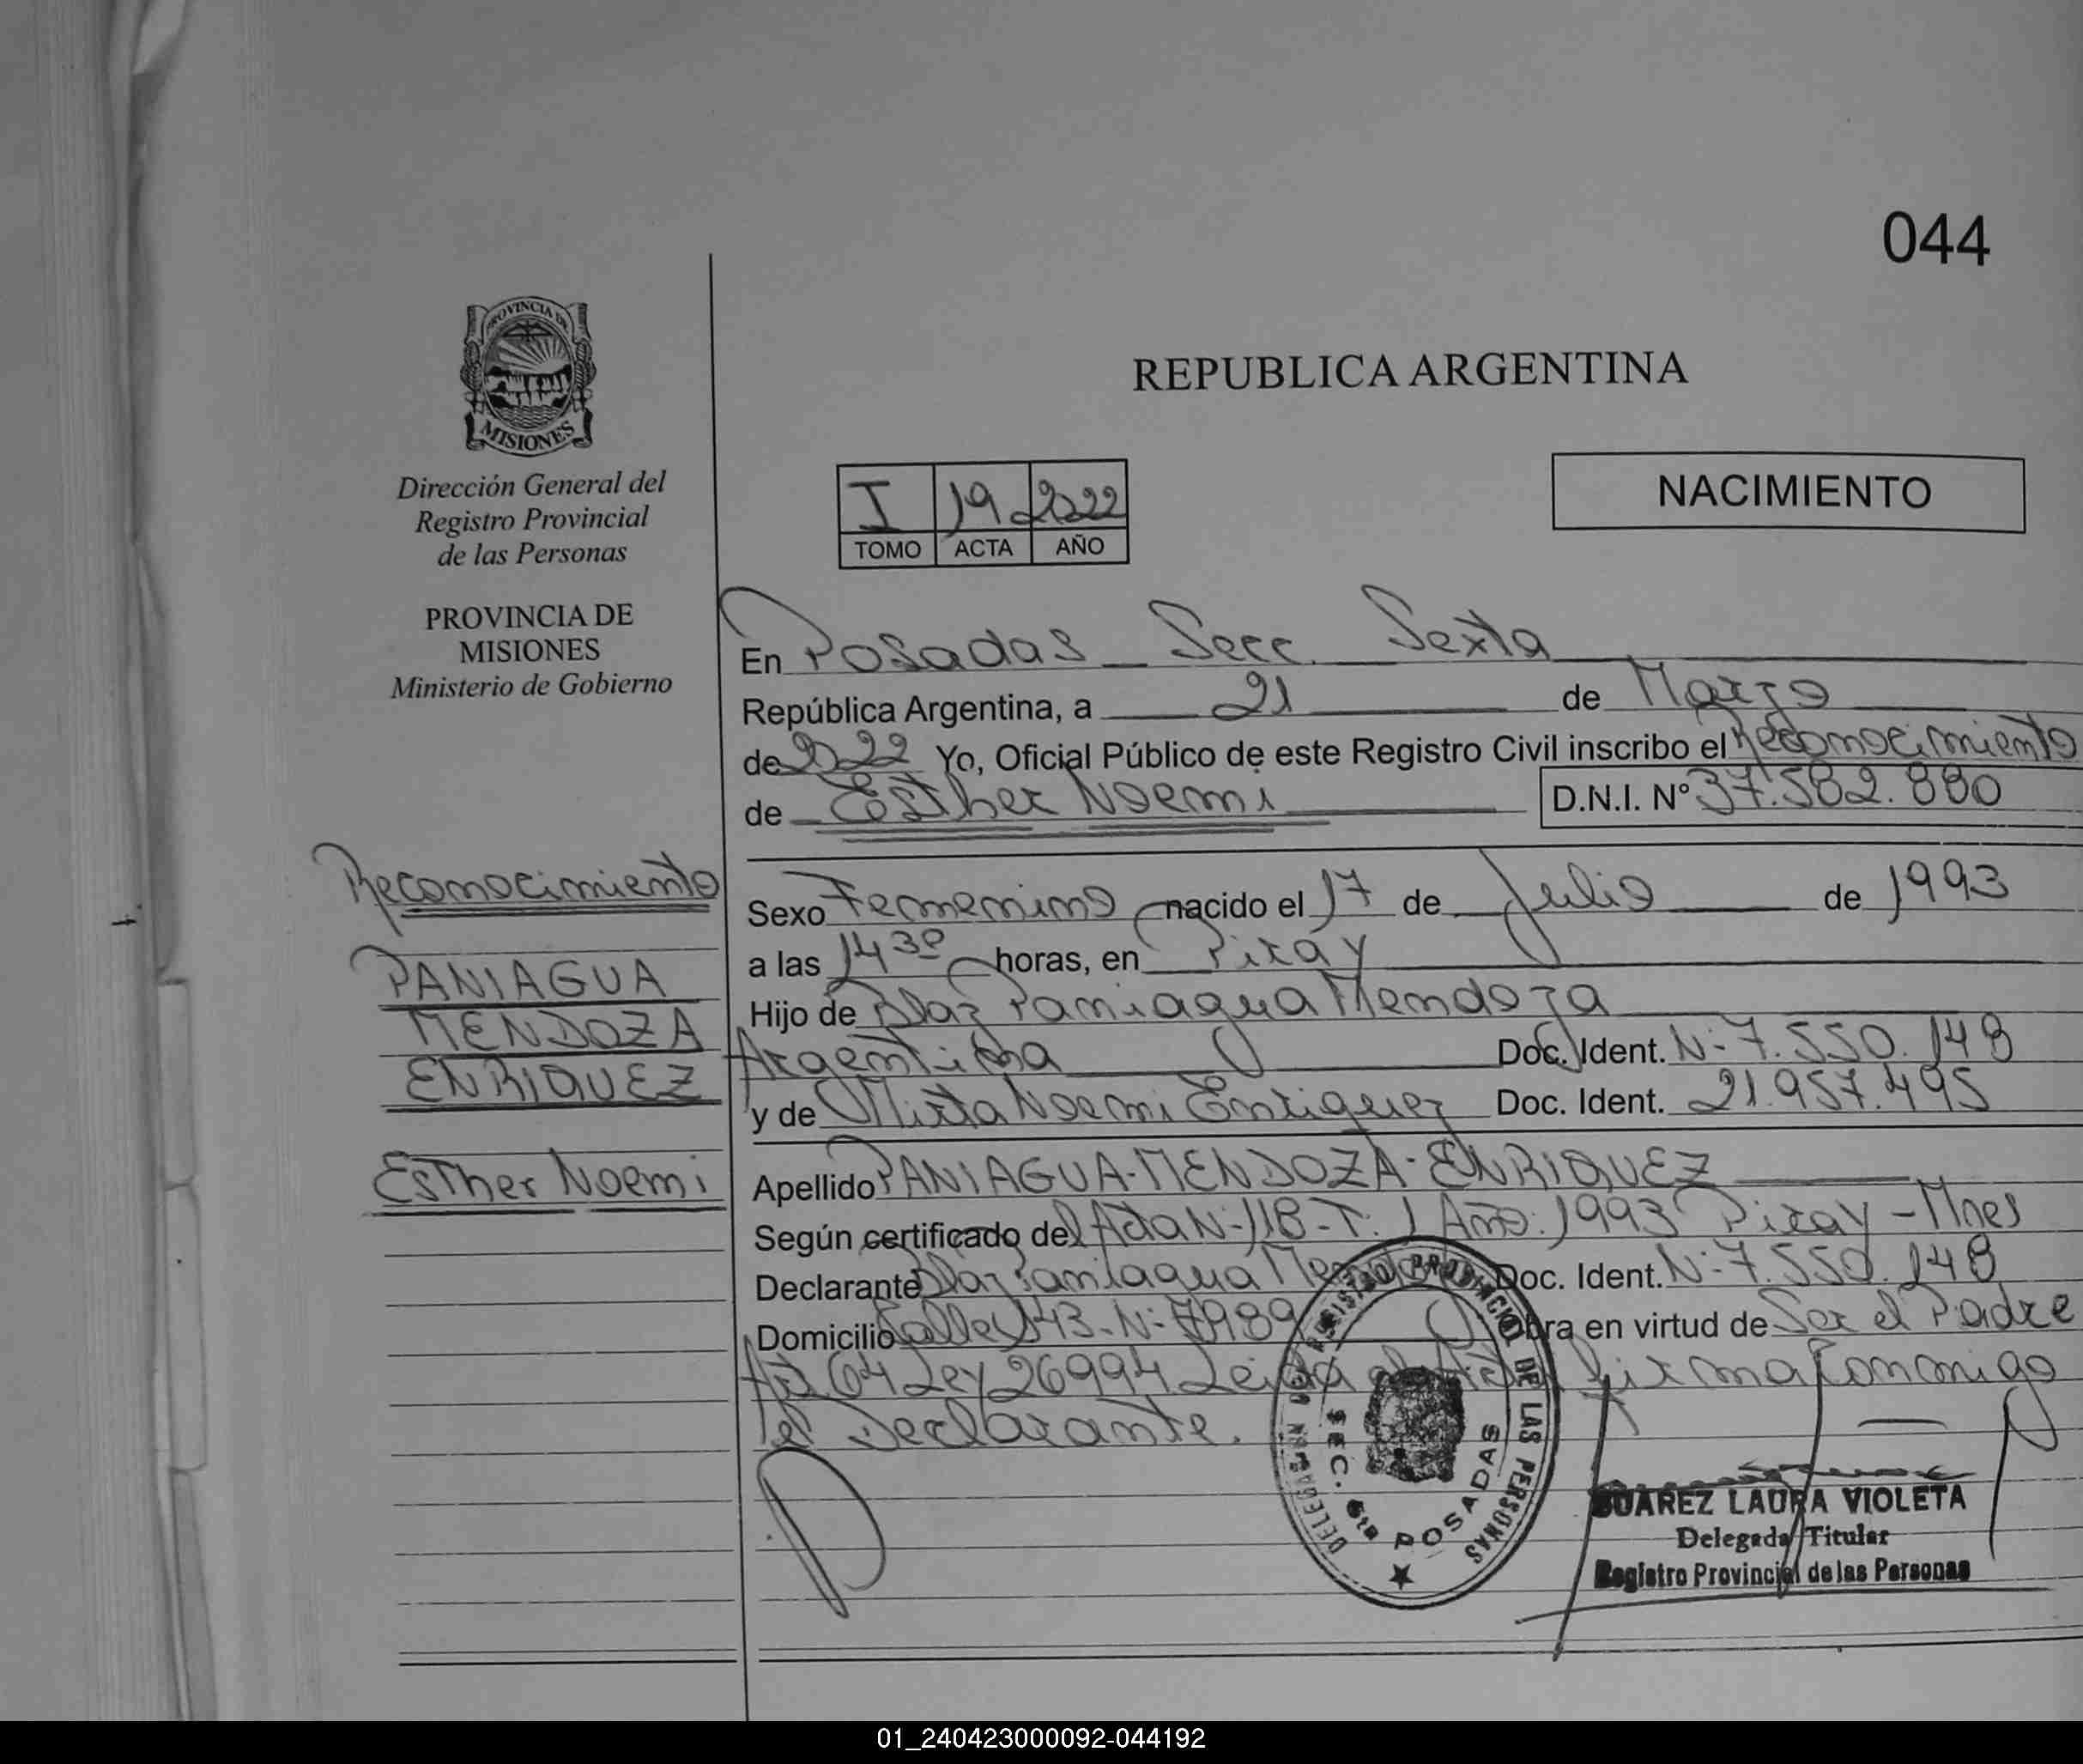 044
PROVINCIA DE
MISIONES
Dirección General del
Registro Provincial
de las Personas
PROVINCIA DE
MISIONES
Ministerio de Gobierno
Reconocimiento
PANIAGUA
MENDOZA
ENRIQUEZ
Esther Noemi
REPUBLICA ARGENTINA
I 19 2022
TOMO ACTA AÑO
NACIMIENTO
En Posadas Secc. Sexta
República Argentina, a 21 de Marzo
de 2022 Yo, Oficial Público de este Registro Civil inscribo el Reconocimiento
de Esther Noemi D.N.I. Nº 37.582.880
Sexo Femenino nacido el 17 de Julio de 1993
a las 14 30 horas, en Piray
Hijo de Blaz Paniagua Mendoza
Argentina Doc. Ident. N: 7.550.148
y de Mirta Noemi Enriquez Doc. Ident. 21.957.495
Apellido PANIAGUA-MENDOZA-ENRIQUEZ
Según certificado del Acta N: 118-T: 1 Año: 1993 Piray - Mnes
Declarante Blaz Paniagua Doc. Ident. N: 7.550.148
Domicilio Calle 143-N: 7989 Obra en virtud de Ser el Padre
Art 64 Ley 26994 Leida el Acta firma Conmigo
el Declarante.
REGISTRO PROVINCIAL DE LAS PERSONAS
SEC. 6ta
POSADAS
SUAREZ LAURA VIOLETA
Delegada Titular
Registro Provincial de las Personas
01_240423000092-044192